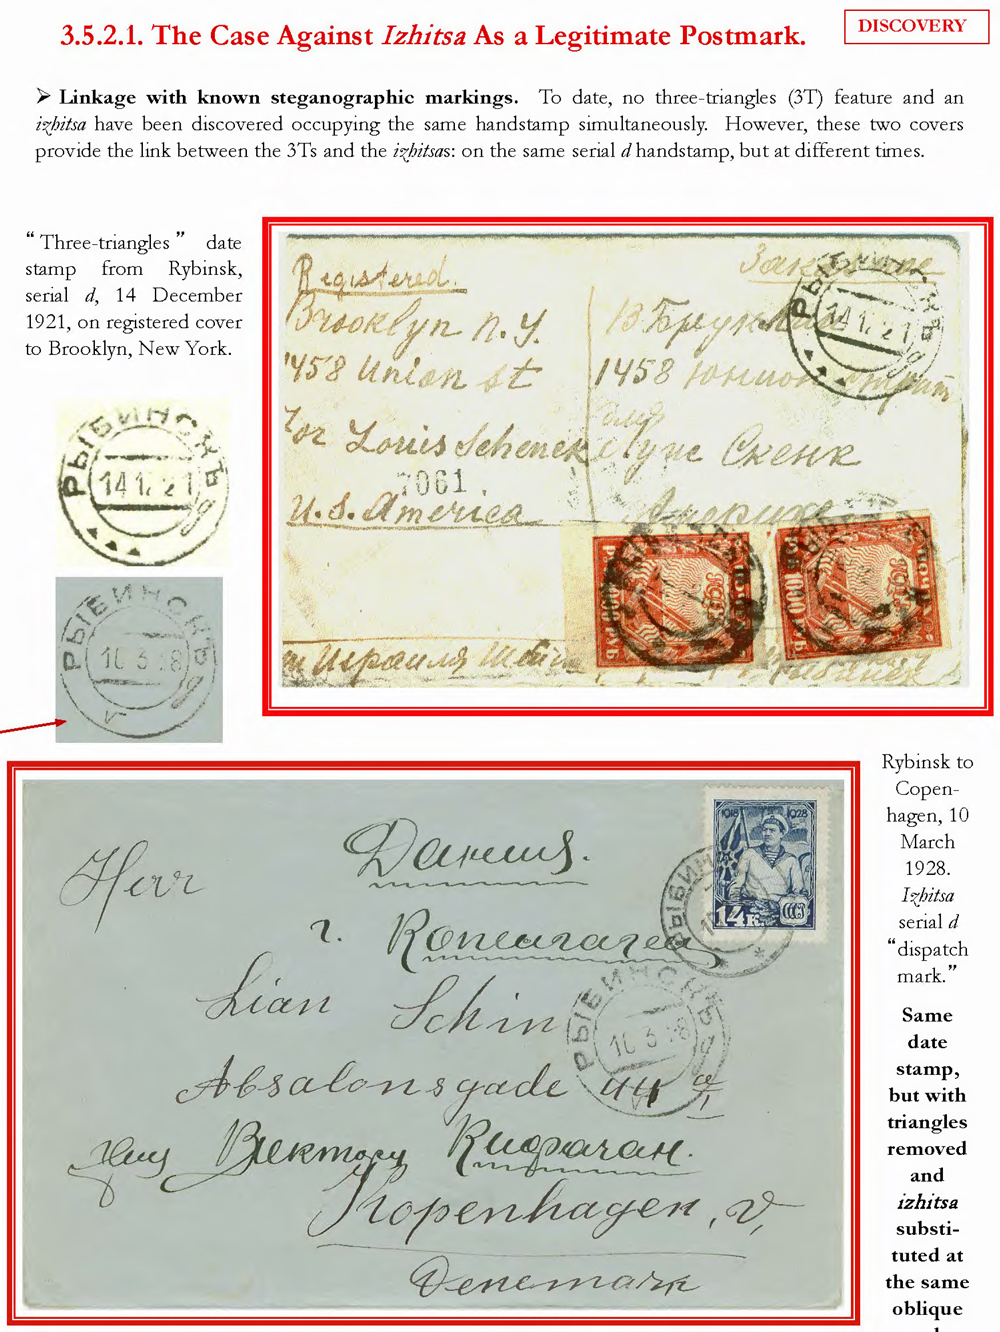 3.5.2.1. The Case Against Izhitsa As a Legitimate Postmark.
DISCOVERY
➢ Linkage with known steganographic markings. To date, no three-triangles (3T) feature and an
izhitsa have been discovered occupying the same handstamp simultaneously. However, these two covers
provide the link between the 3Ts and the izhitsas: on the same serial d handstamp, but at different times.
“Three-triangles” date
stamp from Rybinsk,
serial d, 14 December
1921, on registered cover
to Brooklyn, New York.
РЫБИНСКЪ
14 12 21
РЫБИНСКЪ
10 3 28
Registered.
Заказное
Brooklyn N.Y.
Бруклин
1458 Union st
1458 Юнион стрит
for Louis Schenck
Луис Скенк
7061
U.S. America
Америка
РЫБИНСКЪ
14 12 21
Израиля
Rybinsk to
Copen-
hagen, 10
March
1928.
Izhitsa
serial d
“dispatch
mark.”
Same
date
stamp,
but with
triangles
removed
and
izhitsa
substi-
tuted at
the same
oblique
1918 1928
14 К.
СССР
Herr
Дания.
г. Копенгаген
Lian Schin
РЫБИНСКЪ
10 3 28
Absalonsgade 44
Виктору
Kopenhagen, V,
Denemark